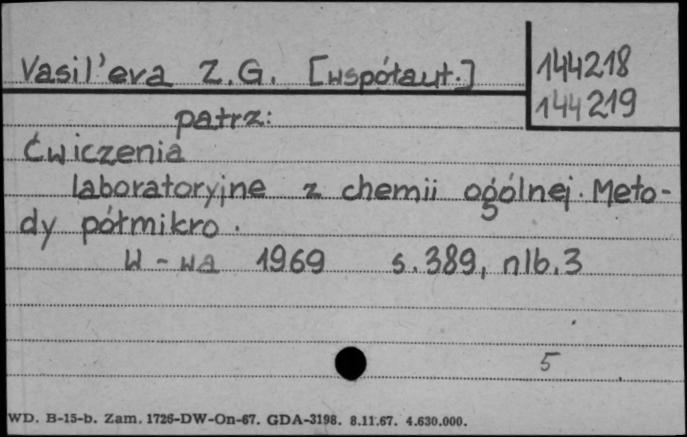 Vasil'eva Z.G. [współaut.]
144218
144219
patrz:
Ćwiczenia
laboratoryjne z chemii ogólnej. Meto-
dy półmikro.
W-wa 1969 s. 389, nlb. 3
5
WD. B-15-b. Zam. 1726-DW-On-67. GDA-3198. 8.11.67. 4.630.000.